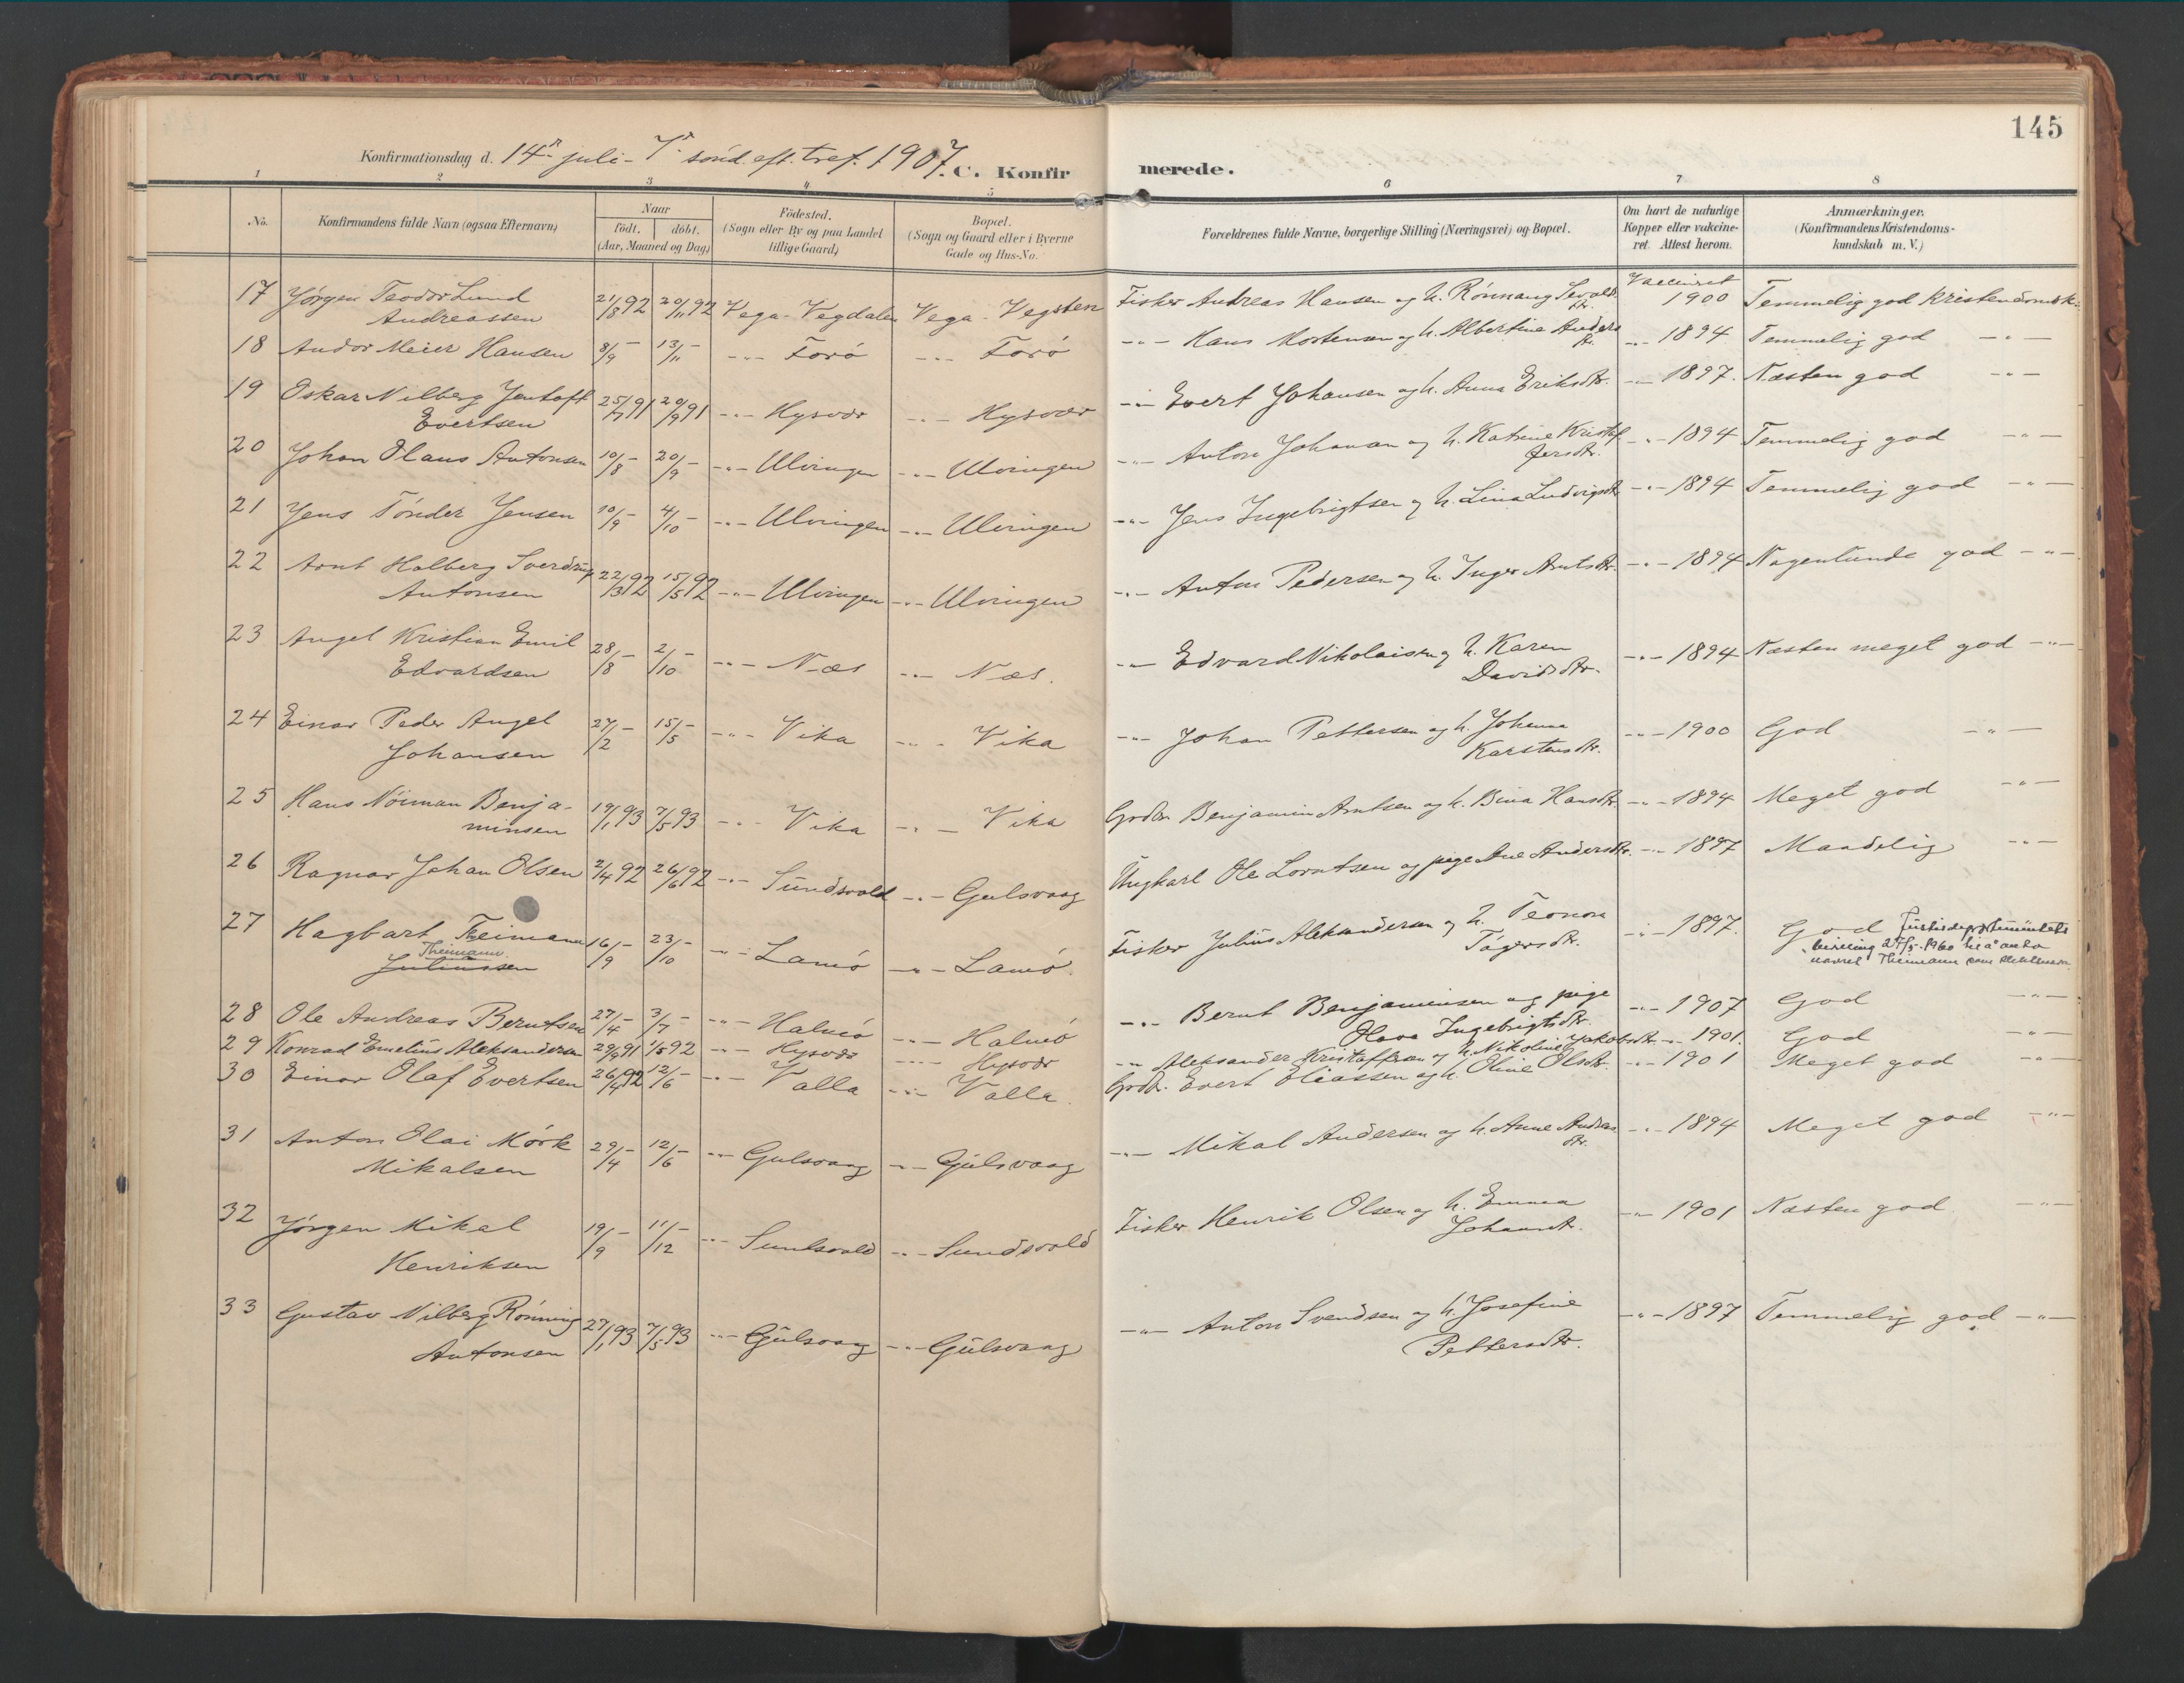 145
Konfirmationsdag d. 14de juli - 7de sönd. eft. tref. 1907. C. Konfirmerede.
1 2 3 4 5 6 7 8
No. Konfirmandens fulde Navn (ogsaa Efternavn) Naar födt. döbt. (Aar, Maaned og Dag) Födested. (Sogn eller By og paa Landet tillige Gaard) Bopæl. (Sogn og Gaard eller i Byerne Gade og Hus-No. Forældrenes fulde Navne, borgerlige Stilling (Næringsvei) og Bopæl. Om havt de naturlige Kopper eller vakcineret. Attest herom. Anmærkninger. (Konfirmandens Kristendomskundskab m. V.)
17 Jörgen Teodor Lund Andreassen 21/8 92 20/11 92 Vega - Vegdalen Vega - Vegsten Fisker Andreas Hansen og h. Rönnaug Sevaldsdtr. Vaccineret 1900 Temmelig god kristendomsk.
18 Andor Meier Hansen 8/9 – 13/11 – -"- Forö -"- Forö -"- Hans Mortensen og h. Albertine Andersdtr. -"- 1894 Temmelig god -"-
19 Oskar Nilberg Jentoft Evertsen 25/7 91 20/9 91 -"- Hysvær -"- Hysvær -"- Evert Johansen og h. Anna Eriksdtr. -"- 1897. Næsten god -"-
20 Johan Olaus Antonsen 10/8 – 20/9 – -"- Ulvingen -"- Ulvingen -"- Anton Johansen og h. Katrine Kristofersdtr. -"- 1894 Temmelig god -"-
21 Jens Tönder Jensen 10/9 – 4/10 – -"- Ulvingen -"- Ulvingen -"- Jens Ingebrigtsen og h. Lina Ludvigsdtr. -"- 1894 Temmelig god -"-
22 Arnt Holberg Sverdrup Antonsen 22/3 92 15/5 92 -"- Ulvingen -"- Ulvingen -"- Anton Pedersen og h. Inger Arntsdtr. -"- 1894 Nogenlunde god -"-
23 Angel Kristian Emil Edvardsen 28/8 – 2/10 – -"- Næs -"- Næs. -"- Edvard Nikolaisen og h. Karen Davidsdtr. -"- 1894 Næsten meget god -"-
24 Einar Peder Angel Johansen 27/2 – 15/5 – -"- Vika -"- Vika -"- Johan Pettersen og h. Johanna Karstensdtr. -"- 1900 God -"-
25 Hans Nöiman Benjaminsen 19/1 93 7/5 93 -"- Vika -"- Vika Grdbr. Benjamin Arntsen og h. Bina Hansdtr. -"- 1894 Meget god -"-
26 Ragnar Johan Olsen 2/4 92 26/6 92 -"- Sundsvold -"- Gulsvaag Ungkarl Ole Lorntsen og pige Ane Andersdtr. -"- 1897 Maadelig -"-
27 Hagbart Theimann Theimann Juliussen 16/9 – 23/10 – -"- Lamö -"- Lamö. Fisker Julius Aleksandersen og h. Teonora Tögersdtr. -"- 1897. God Justisdepartementets bevilling 25/5-1960 til å anta navnet Theimann som slektsnavn
28 Ole Andreas Berntsen 27/4 – 3/7 – -"- Halmö -"- Halmö -"- Bernt Benjaminsen og pige Olava Ingebrigtsdtr. -"- 1907 God -"-
29 Konrad Emelius Aleksandersen 29/9 91 1/5 92 -"- Hysvær -"- Hysvær -"- Aleksander Kristoffersen og h. Nikoline Jakobsdtr. -"- 1901. God -"-
30 Einar Olaf Evertsen 26/4 92 12/6 – -"- Valla -"- Valla. Grdbr. Evert Eliassen og h. Oline Olsdtr. -"- 1901 Meget god -"-
31 Anton Olai Mörk Mikalsen 29/4 – 12/6 – -"- Gulsvaag -"- Gulsvaag -"- Mikal Andersen og h. Anne Andersdtr. -"- 1894 Meget god -"-
32 Jörgen Mikal Henriksen 19/9 – 11/12 – -"- Sundsvold -"- Sundsvold Fisker Henrik Olsen og h. Emma Johansdtr. -"- 1901 Næsten god -"-
33 Gustav Nilberg Rönning Antonsen 27/1 93 7/5 93 -"- Gulsvaag -"- Gulsvaag -"- Anton Svendsen og h. Josefine Pettersdtr. -"- 1897 Temmelig god -"-